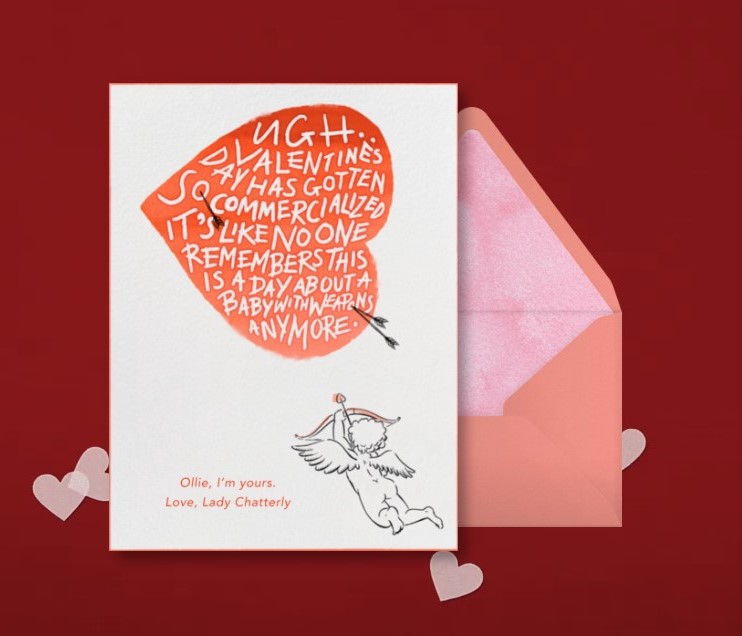 UGH..
VALENTINE'S
DAY HAS GOTTEN
SO COMMERCIALIZED
IT'S LIKE NO ONE
REMEMBERS THIS
IS A DAY ABOUT A
BABY WITH WEAPONS
ANYMORE.
Ollie, I'm yours.
Love, Lady Chatterly